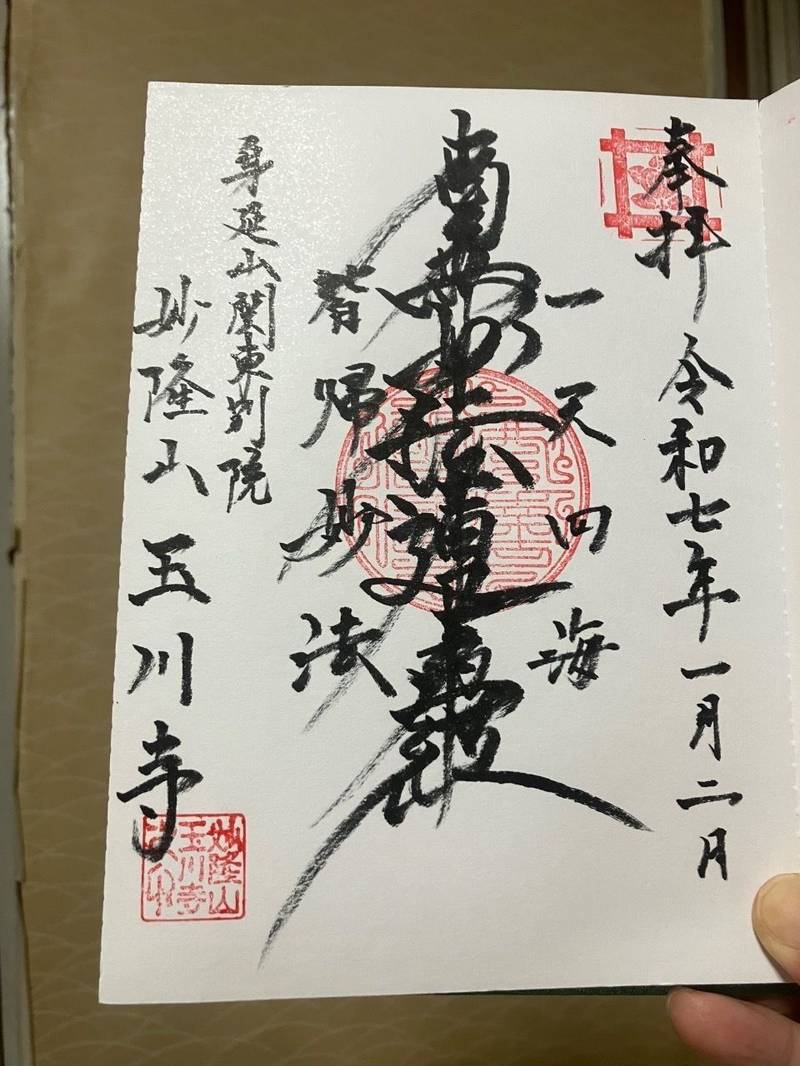 奉拝
令和七年一月二日
一天四海
南無妙法蓮華経
皆帰妙法
身延山関東別院
妙隆山 玉川寺
妙隆山
玉川寺